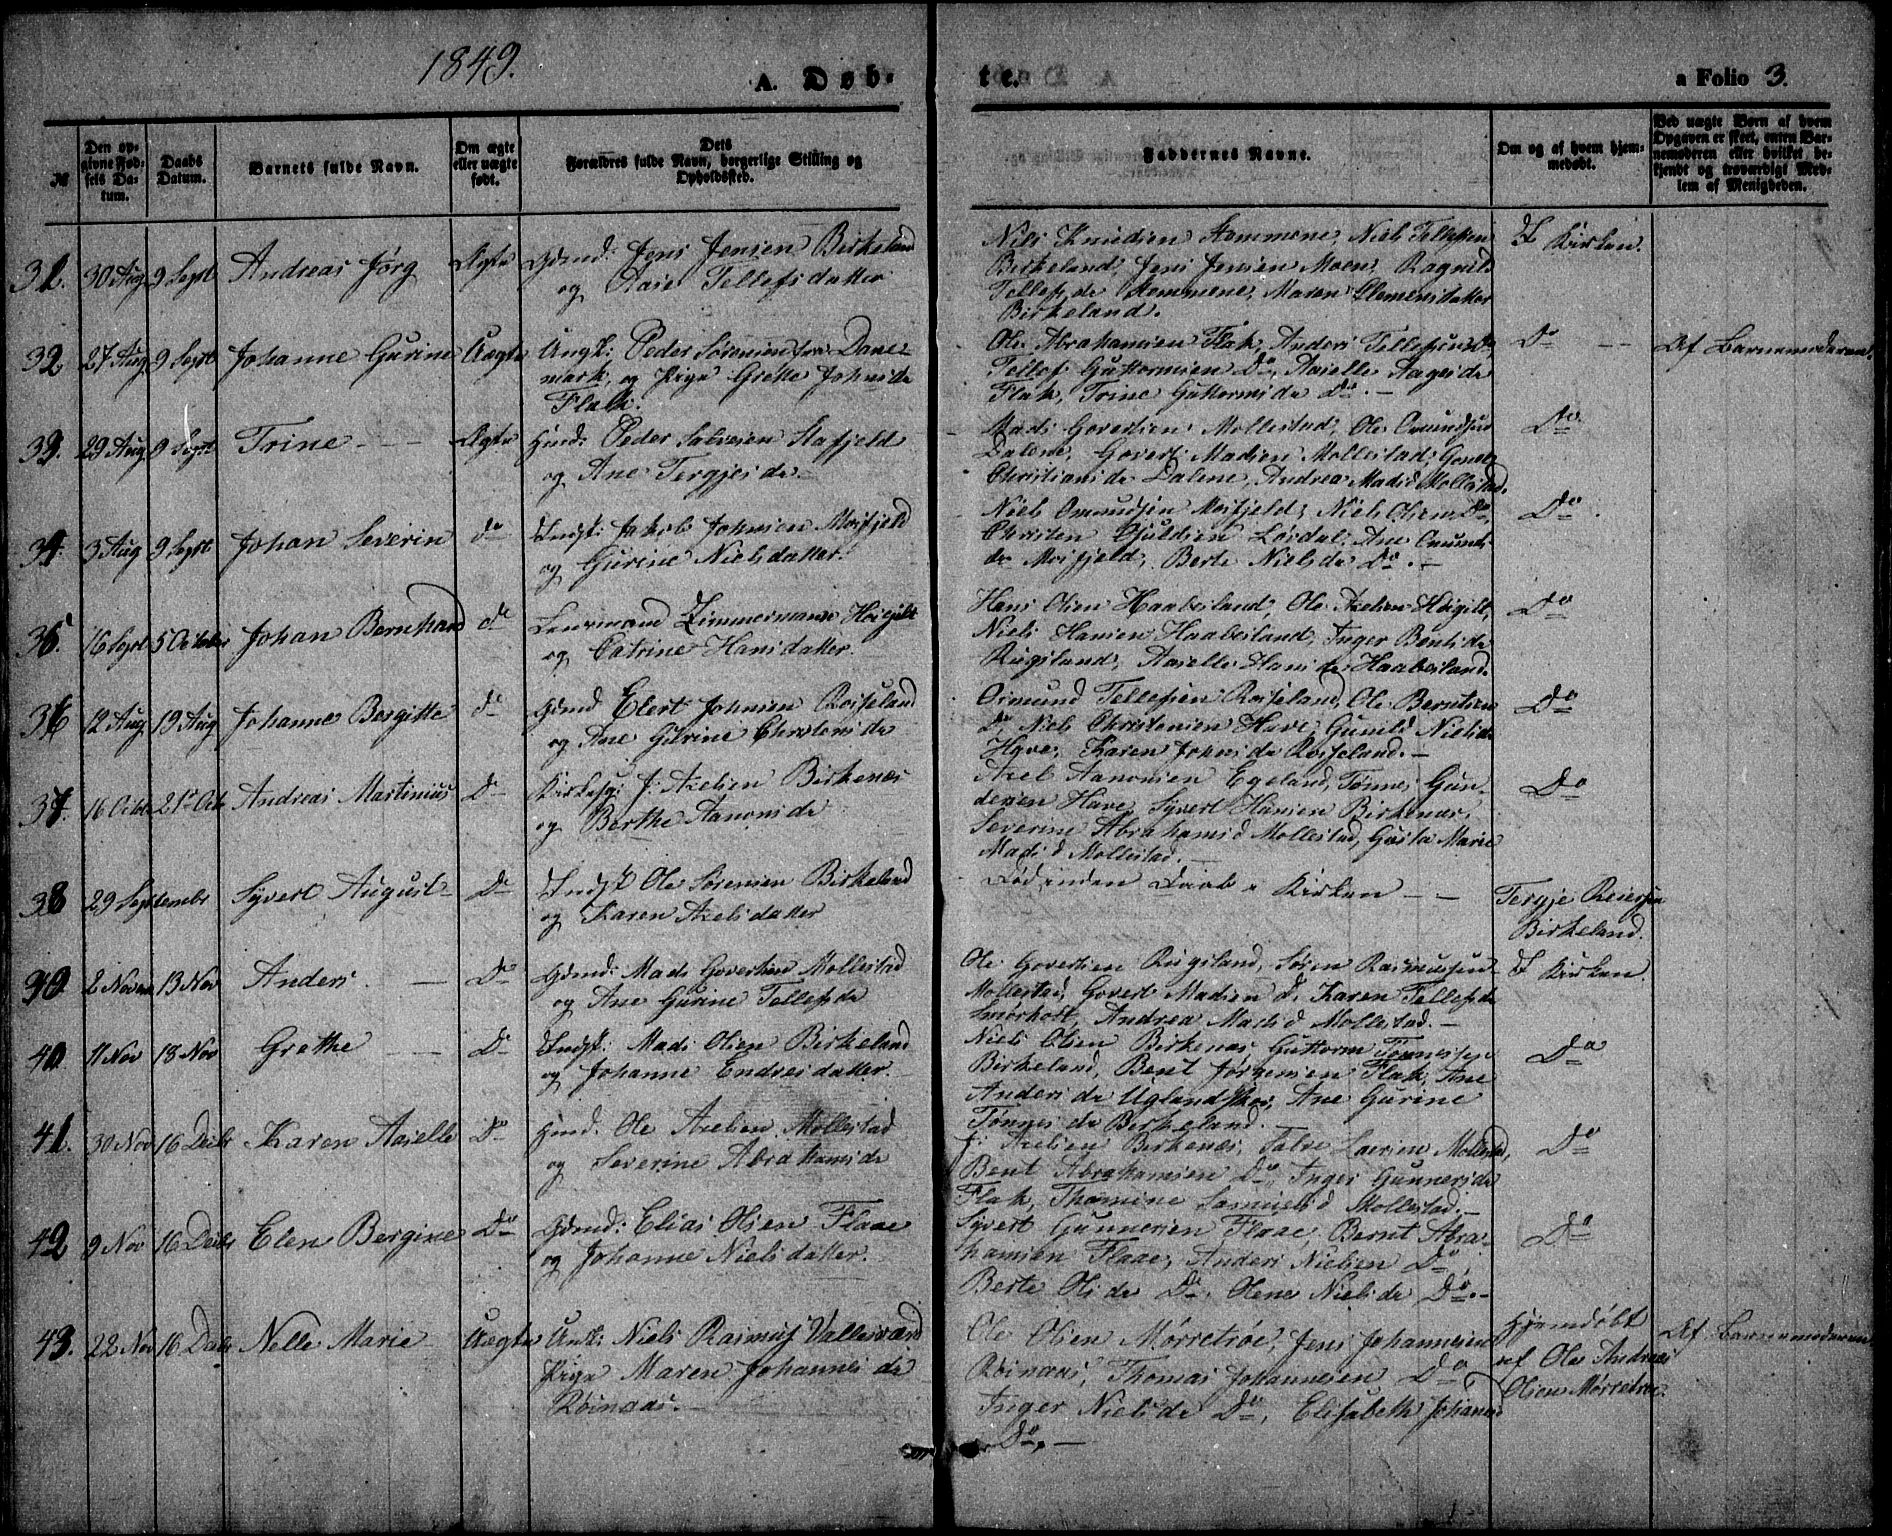 1849.
A. Døb-
te.
a Folio 3.
№
Den op-
givne Fød-
sels Da-
tum.
Daabs
Datum.
Barnets fulde Navn.
Om ægte
eller uægte
født.
Dets
Forældres fulde Navn, borgerlige Stilling og
Opholdssted.
Faddernes Navne.
Om og af hvem hjem-
medøbt.
Ved uægte Børn af hvem
Opgaven er skeet, enten Bar-
nemoderen eller hvilket, be-
kjendt og troværdigt Med-
lem af Menigheden.
31. 30 Aug 9 Sept Andreas Jørg Ægte Gdmd: Jens Jensen Birkeland
og Aase Tellefsdatter
Nils Knudsen Hommene, Niels Tellefsen
Birkeland, Jens Jensen Moen, Ragnild
Tellefsdr Hommene, Maren Clemensdatter
Birkeland.
I Kirken.
32 27 Aug 9 Sept Johanne Gurine Uægte Ungk: Peder Sørensen fra Dane-
mark, og Pige Grethe Johnsdr
Flak.
Ole Abrahamsen Flak, Anders Tellefsen Do,
Tellef Guttormsen Do, Aaselle Aagesdr
Flak, Trine Guttormsdr Do. -
Do - -
Af Barnemoderen.
33. 29 Aug 9 Sept Trine - - - Ægte Hmd: Peder Salvesen Stafjeld
og Ane Tergjesdr
Mads Govertsen Mollestad, Ole Omundsen
Dalene, Govert Madsen Mollestad,
Christiansdr Dalene, Andrea Madsd Mollestad.
Do
34. 3 Aug 9 Sept Johan Severin do Indst: Jakob Johnsen Mosfjeld
og Gurine Nielsdatter.
Niels Omundsen Mosfjeld, Niels Olsen Do,
Christen Lørdal, Ane Omunds-
dr Mosfjeld, Berte Nielsdr Do. -
Do.
35. 16 Sept 5 October Johan Bernhard do Lensmand Zimmermann Høigilt
og Catrine Hansdatter.
Hans Olsen Haabesland, Ole Axelsen Høigilt,
Niels Hansen Haabesland, Inger Bentsdr
Rugsland, Aaselle Hansdr Haabesland.
Do
36 12 Aug 19 Aug Johanne Bergitte do Gdmd Elert Johnsen Rosseland
og Ane Gurine Christensdr
Omund Tellefsen Rosseland, Ole Berntsen
Do, Niels Christensen Have, Gunild Nielsdr
Have, Karen Johnsdr Rosseland. -
Do
37. 16 Octbr 21st Octb Andreas Martinius Do Kirkesg: J: Axelsen Birkenæs
og Berthe Aanonsdr
Axel Aanonsen Egeland, Tønnes Gun-
dersen Have, Syvert Hansen Birkenæs,
Severine Abrahamsd Mollestad, Gusta Marie
Madsd Mollestad. -
Do
38 29 September Syvert August - Do Indst Ole Sørensen Birkeland
og Karen Axelsdatter
Død inden Daab i Kirken - -
Tergje Reiersen
Birkeland.
39 2 Novbr 13 Nov Anders. - Do Gdmd: Mads Govertsen Mollestad
og Ane Gurine Tellefsdr
Ole Govertsen Rugsland, Søren Rasmussen
Mollestad, Govert Madsen do, Karen Tellefsdr
Smørholt, Andrea Madsd Mollestad. -
I Kirken
40 11 Nov 18 Nov Grethe - - Do Indst: Mads Olsen Birkeland
og Johanne Endresdatter.
Niels Olsen Birkenæs, Guttorm Tønnessen
Birkeland, Bent Jørgensen Flak, Ane
Andersdr Uglandskor, Ane Gurine
Tønnesdr Birkeland. -
Do
41. 30 Nov 16 Decbr Karen Aaselle Do Hmd. Ole Axelsen Mollestad
og Severine Abrahamsdr
J: Axelsen Birkenæs, Salve Larsen Mollestad,
Bent Abrahamsen Do, Inger Gunnersdr
Flak, Thomine Samuelsd Mollestad. -
Do
42 9 Nov 16 Decbr Elen Bergine Do Gdmd: Elias Olsen Flaae
og Johanne Nielsdatter.
Syvert Gunnersen Flaae, Bernt Abra-
hamsen Flaae, Anders Nielsen Do,
Berte Olsdr Do, Olene Nielsdr Do. -
Do
43. 22 Nov 16 Decbr Nelle Marie Uægte Unk: Niels Rasmus Vallesværd
Pige Maren Johannesdr
Røinaas. -
Ole Olsen Mørretrøe, Jens Johannesen
Røinaas, Thomas Johannesen Do,
Inger Nielsdr Do, Elisabeth Johannsd
Do. -
Hjemdøbt
af Ole Andreas
Olsen Mørretrøe
Af Barnemoderen